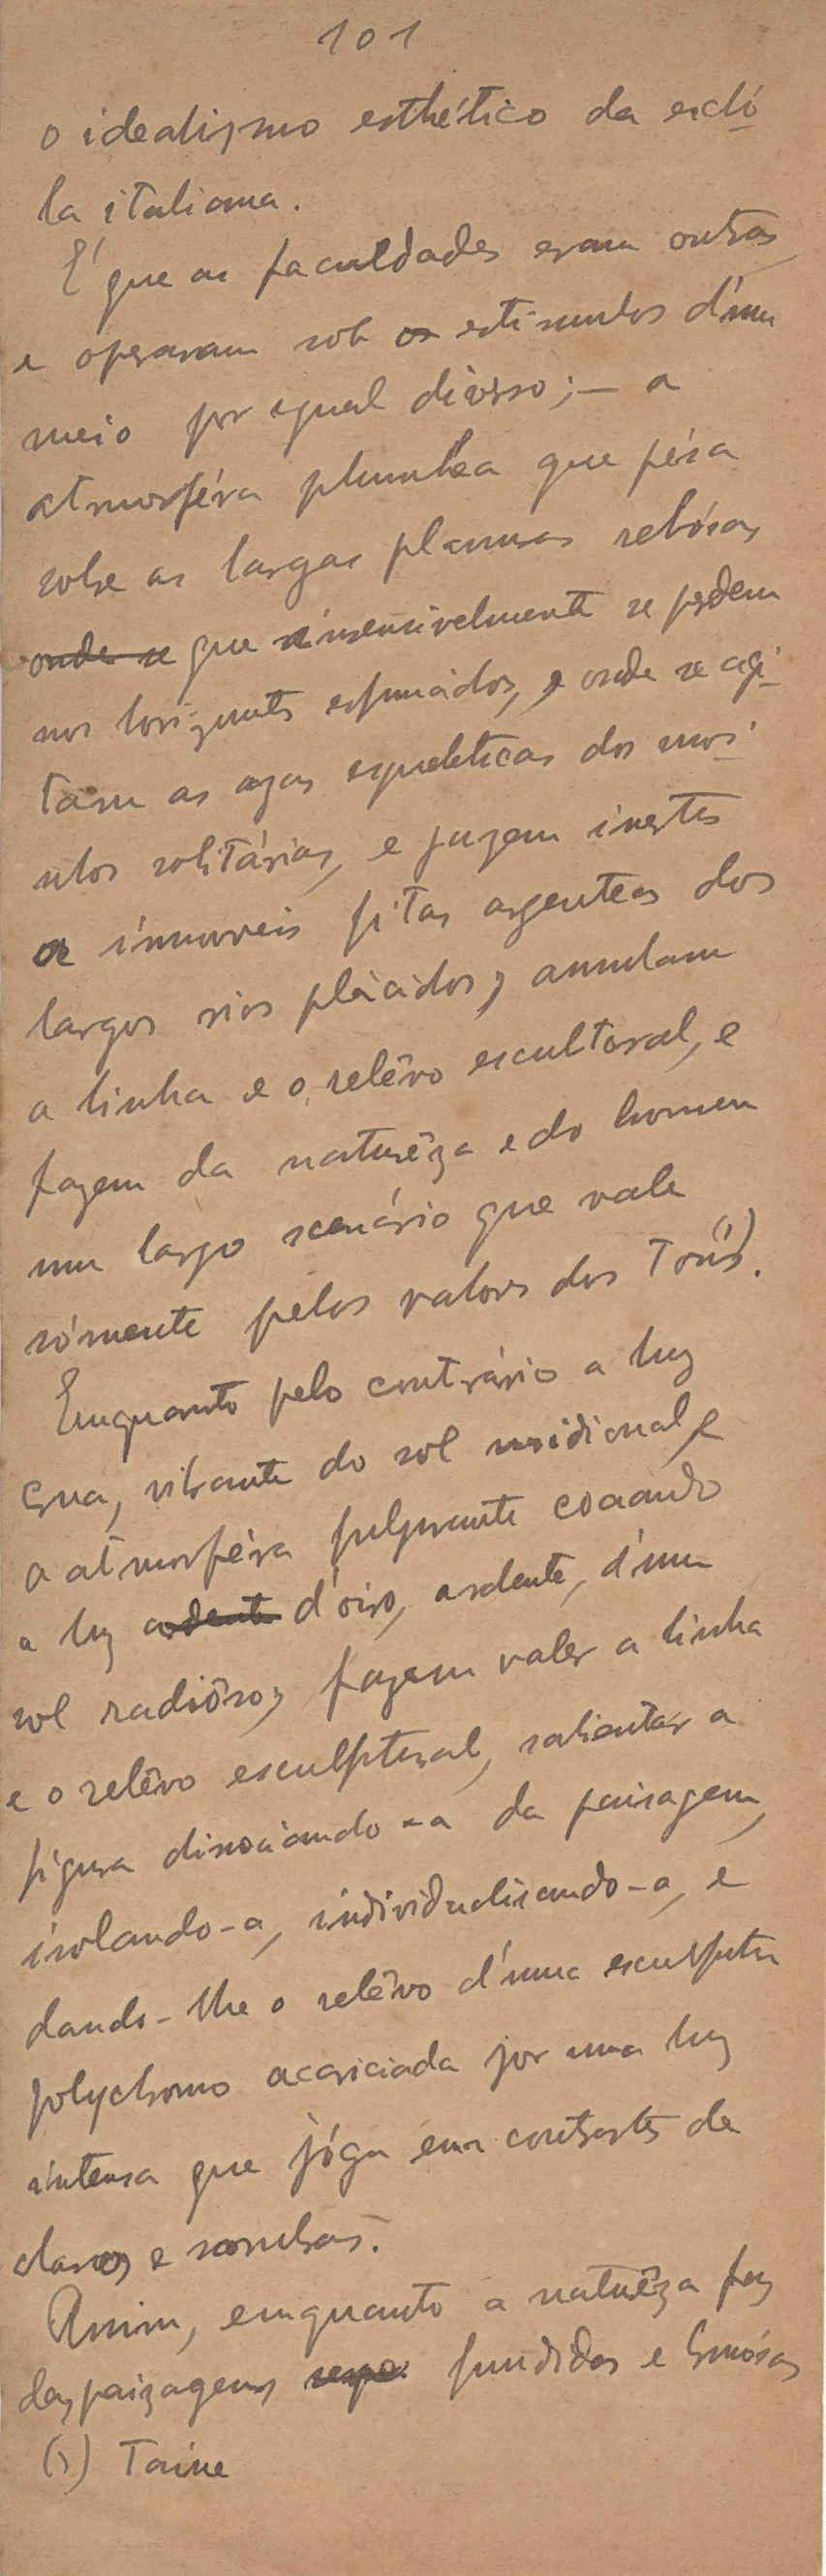 101
o idealismo esthético da escó
la italiana.
É que as faculdades eram outras
e operavam sob os estimulos d'um
meio por egual diverso; - a
atmosféra plumbea que pésa
sobre as largas planuras relvósas
onde se que insensivelmente se perdem
nos horizontes esfumados, e onde se agi-
tam as azas esqueléticas dos moí-
nhos solitários, e jazem inertes
as imoveis fitas argenteas dos
largos rios plácidos, annulam
a linha e o relêvo escultoral, e
fazem da naturêza e do homem
um largo scenário que vale
sómente pelos valores dos Tons (1).
Emquanto pelo contrário a luz
crua, vibrante do sol meridional, e
a atmosféra fulgurante coando
a luz ardente d'oiro, ardente, d'um
sol radiôso, fazem valer a linha
e o relêvo esculptural, salientar a
figura dissociando-a da paisagem,
isolando-a, individualisando-a, e
dando-lhe o relêvo d'uma esculptura
polychromo acariciada por uma luz
intensa que jóga em contrastes de
claros e sombras.
Assim, emquanto a naturêza faz
das paizagens fundidas e brumósas
(1) Taine